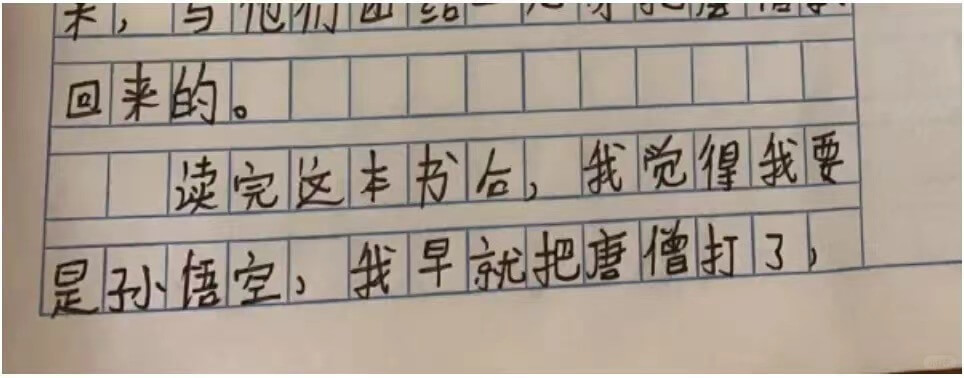 来，与他们团结一起才把唐僧
回来的。
读完这本书后，我觉得我要
是孙悟空，我早就把唐僧打了，